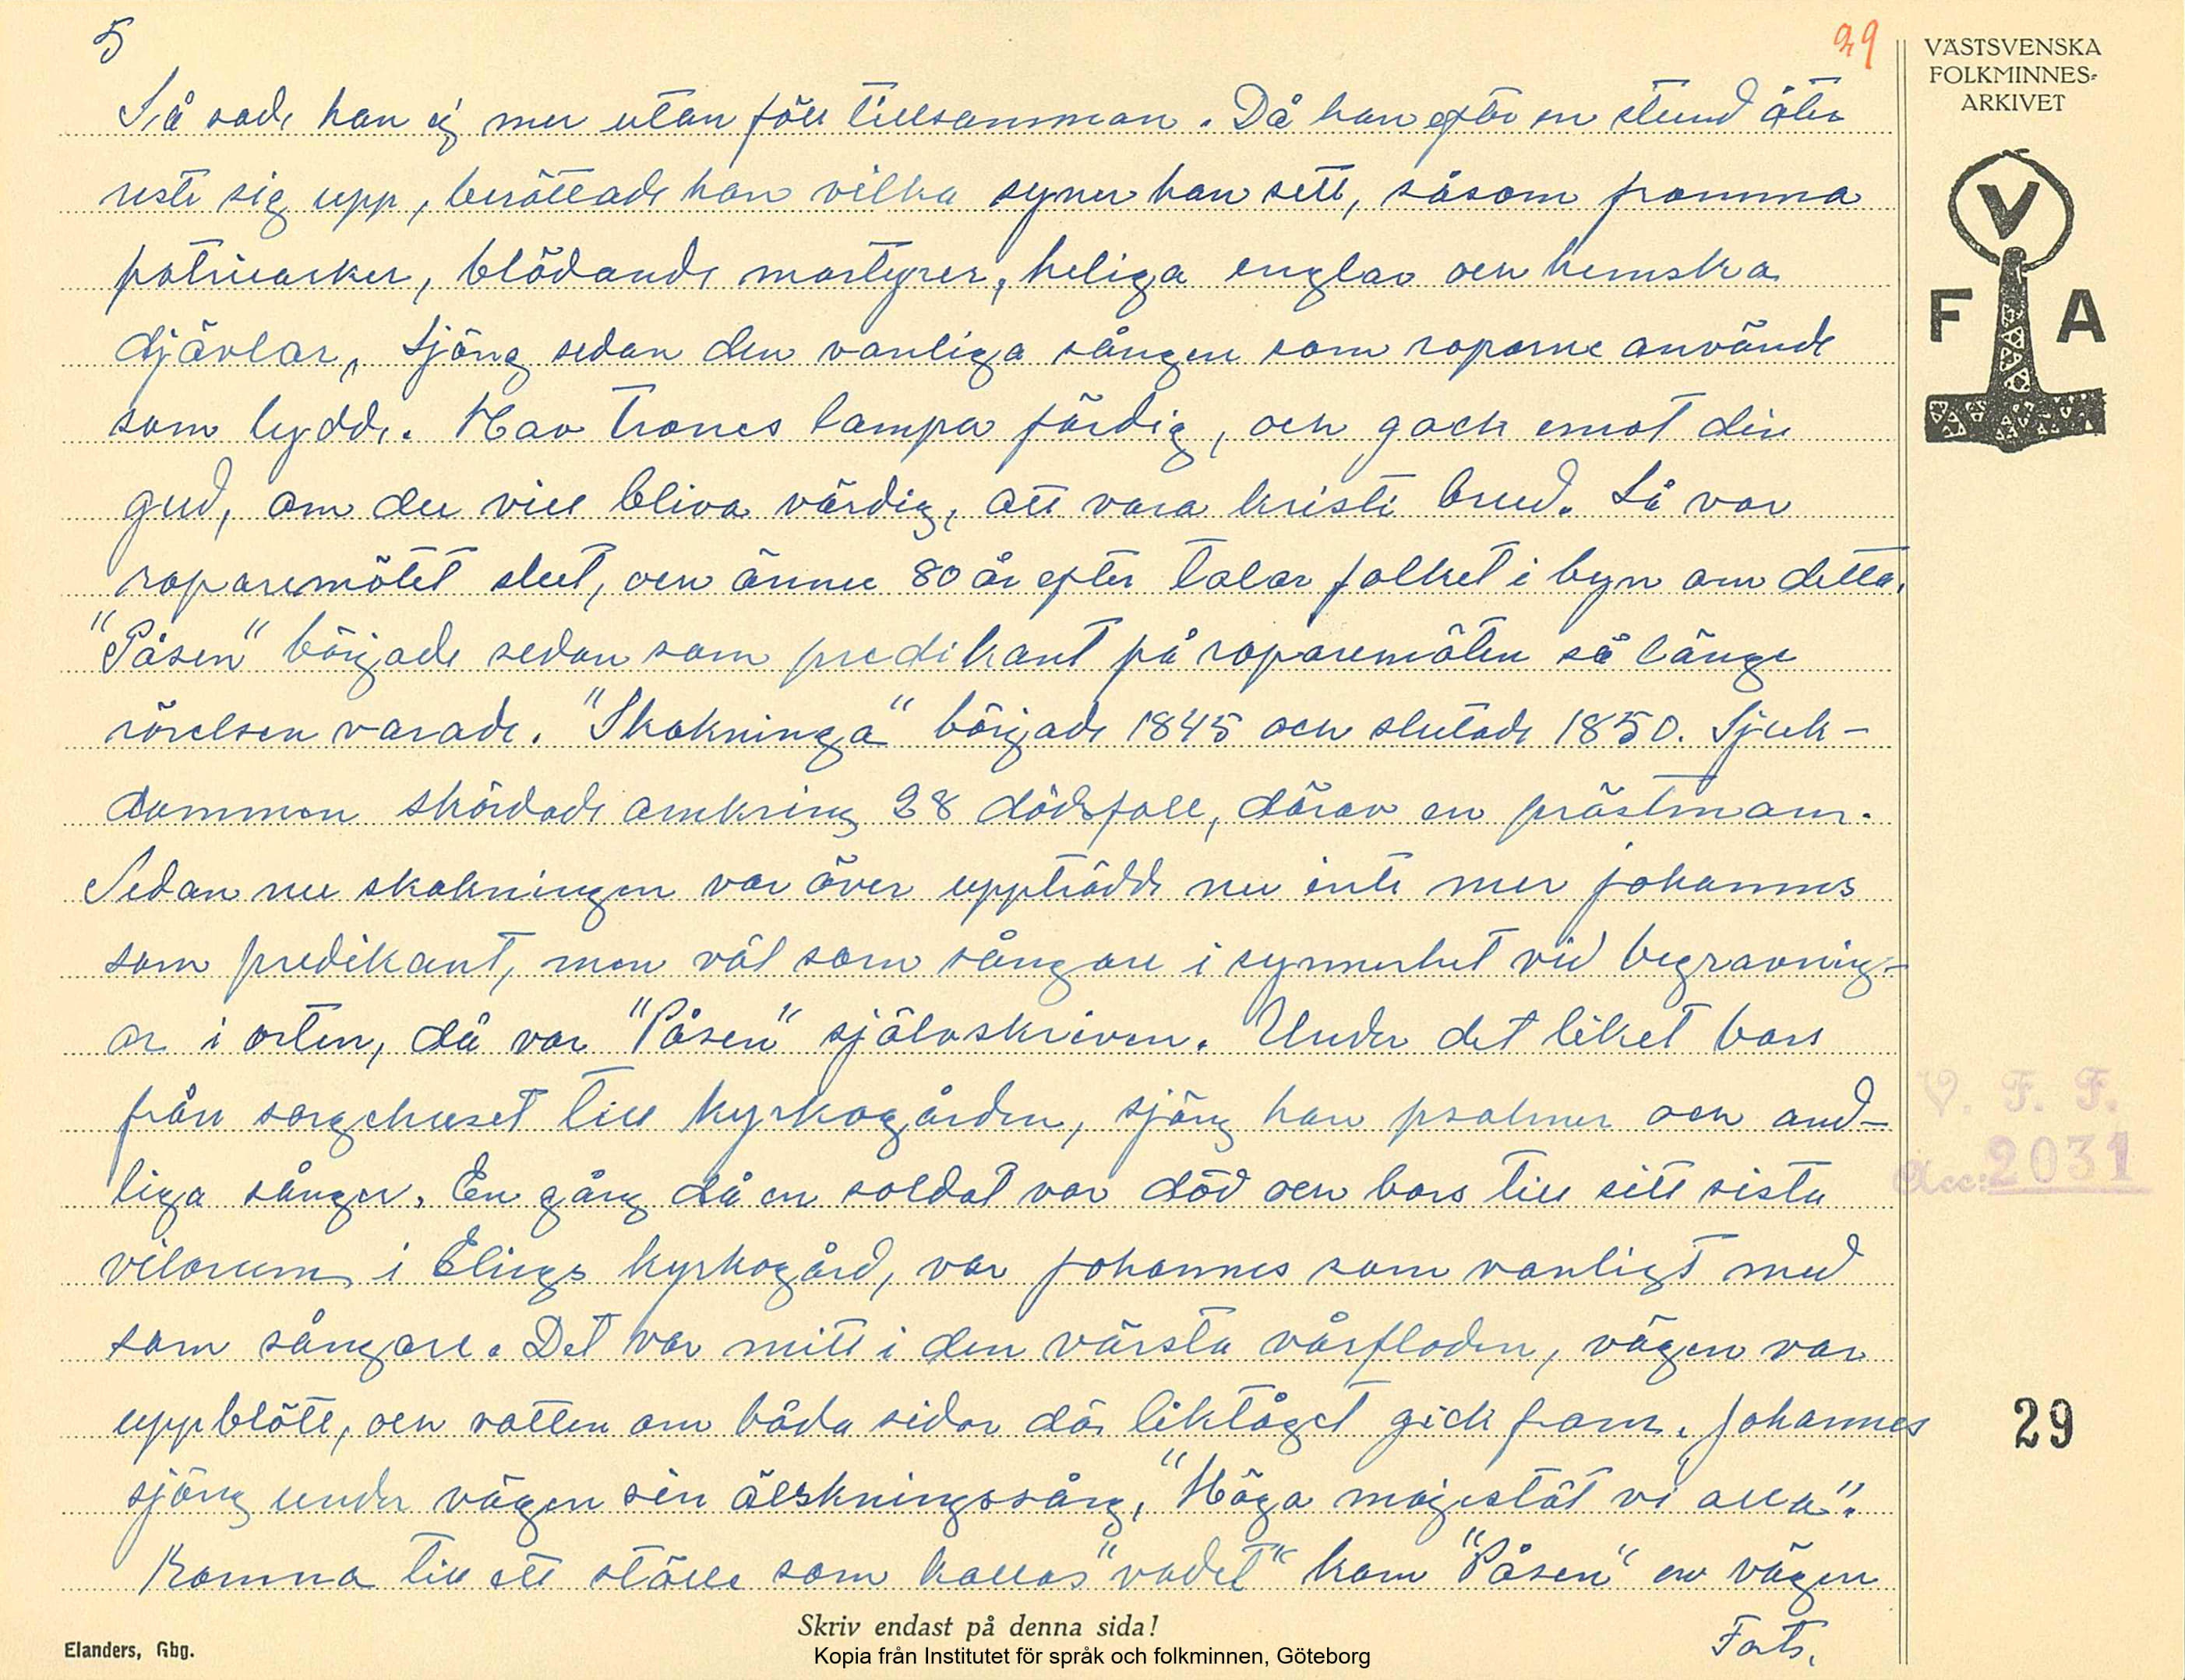 5
29
VÄSTSVENSKA
FOLKMINNES-
ARKIVET
V
F A
Så sade han ej mer utan föll tillsamman. Då han efter en stund åter
reste sig upp, berättade han vilka syner han sett, såsom fromma
patriearker, blödande martyrer, heliga englar och hemska
djävlar, sjöng sedan den vanliga sången som roparne använde
som lydde. Hav trones lampa färdig, och gack emot din
gud, om du vill bliva värdig, att vara kristi brud. Så var
roparemötet slut, och ännu 80 år efter talar folket i byn om detta.
"Påsen" började sedan som predikant på roparemöten så länge
rörelsen varade. "Skakninga" började 1845 och slutade 1850. Sjuk-
dommen skördade omkring 28 dödsfall, därav en prästman.
Sedan nu skakningen var över uppträdde nu inte mer johannes
som predikant, men väl som sångare i synnerhet vid begravning-
ar i orten, då var "Påsen" självskriven. Under det liket bars
från sorgehuset till kyrkogården, sjöng han psalmer och and-
liga sånger. En gång då en soldat var död och bars till sitt sista
vilorum i Elings kyrkogård, var johannes som vanligt med
som sångare. Det var mitt i den värsta vårfloden, vägen var
uppblött, och vatten om båda sidor där liktåget gick fram. Johannes
sjöng under vägen sin älskningssång, "Höga majestät vi alla".
Komna till ett ställe som kallas "vadet" kom "Påsen" ur vägen
Forts.
V. F. F.
Acc: 2031
29
Skriv endast på denna sida!
Elanders, Gbg.
Kopia från Institutet för språk och folkminnen, Göteborg